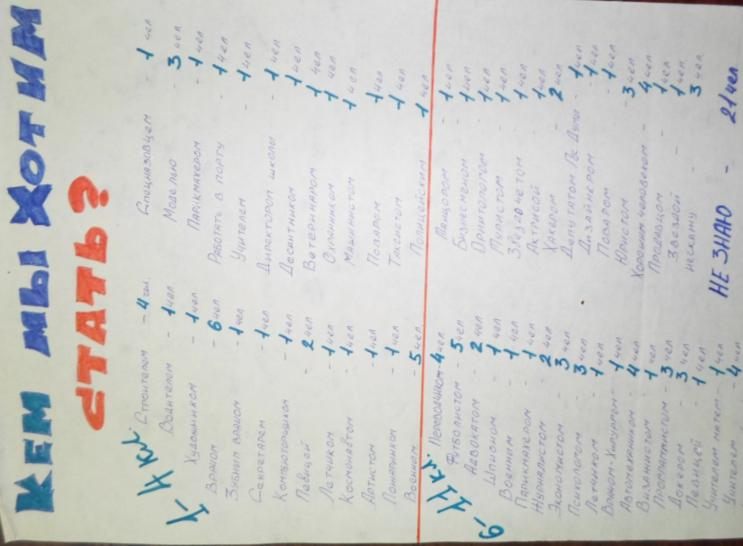 КЕМ МЫ ХОТИМ
СТАТЬ?
1-4 кл.
Строителем - 4 чел.
Водителем - 1 чел
Художником - 1 чел
Врачом - 6 чел.
Зубным врачом - 1 чел
Секретарём - 1 чел
- 1 чел
Певицей - 2 чел
Лётчиком - 1 чел
Космонавтом - 1 чел
Артистом - 1 чел
Пожарником - 1 чел
Военным - 5 чел
Спецназовцем - 1 чел
Моделью - 3 чел
Парикмахером - 1 чел
Работать в порту - 1 чел
Учителем - 1 чел
Директором школы - 1 чел
Десантником - 1 чел
Ветеринаром - 1 чел
- 1 чел
Машинистом - 1 чел
Поваром - 1 чел
Таксистом - 1 чел
Полицейским - 1 чел
6-11 кл.
Переводчиком - 4 чел
Футболистом - 5 чел
Адвокатом - 2 чел
Шпионом - 1 чел
Военным - 1 чел
Парикмахером - 1 чел
Журналистом - 2 чел
Экономистом - 3 чел
Психологом - 3 чел
Лётчиком - 1 чел
Врачом-хирургом - 1 чел
Автомехаником - 4 чел
Визажистом - 1 чел
Программистом - 3 чел
Докером - 3 чел
Певицей - 1 чел
Учителем матем. - 1 чел
Учителем - 4 чел
Танцором - 1 чел
Бизнесменом - 1 чел
Орнитологом - 1 чел
- 1 чел
Звездочетом - 1 чел
Актрисой - 1 чел
Хакером - 2 чел
Депутатом Гос Думы - 1 чел
Дизайнером - 1 чел
Поваром - 1 чел
Юристом - 3 чел
Хорошим человеком - 4 чел
Продавцом - 1 чел
Звездой - 1 чел
не скажу - 3 чел
НЕ ЗНАЮ - 21 чел